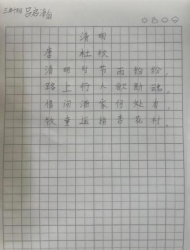 清明
唐 杜牧
清明时节雨纷纷，
路上行人欲断魂。
借问酒家何处有，
牧童遥指杏花村。